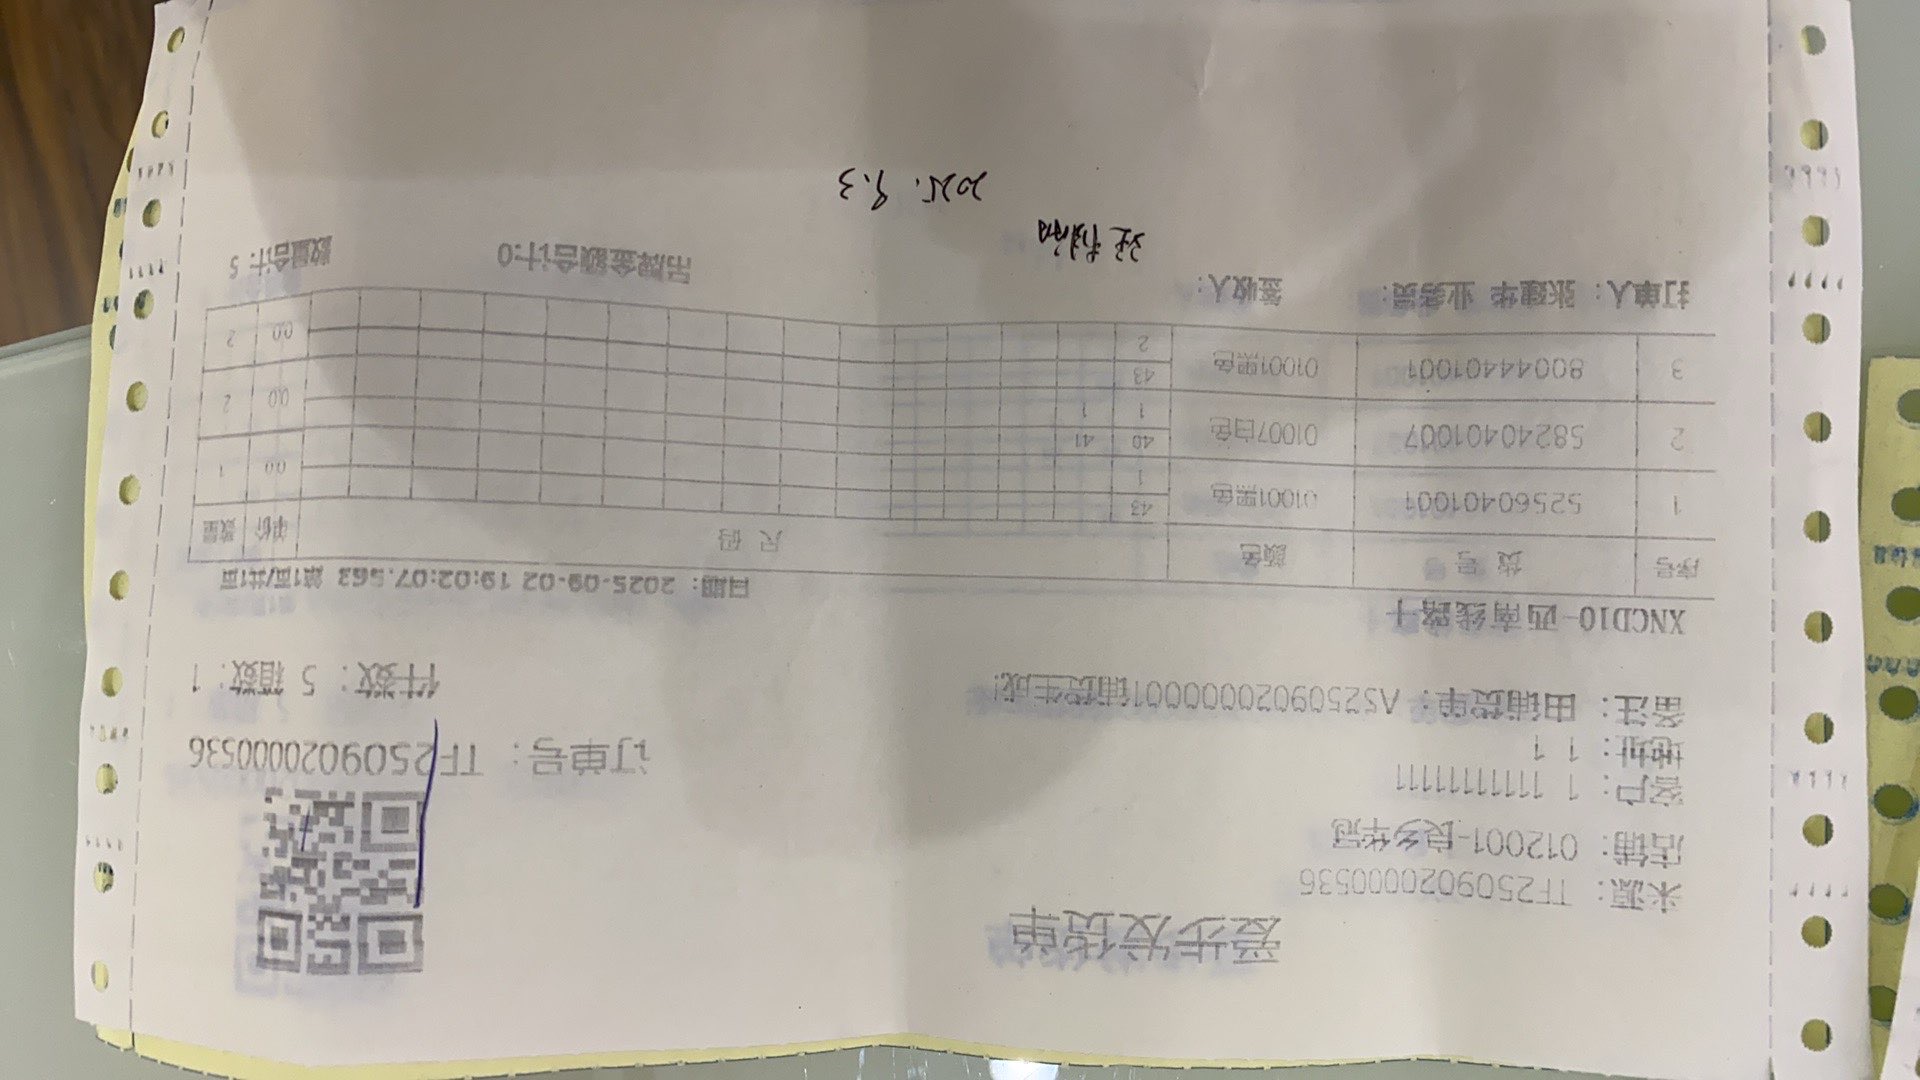 爱步发货单
来源： TF2509020000536
店铺： 012001-良乡华冠
客户： 1 11111111111
地址： 1 1
备注： 由铺货单：AS2509020000001铺货生成！
订单号： TF2509020000536
件数： 5 箱数：1
XNCD10-西南线路十
日期： 2025-09-02 19:02:07.563 第1页/共1页
序号 货号 颜色 尺码 单价 数量
1 52560401001 01001黑色 43 0.0 1
1
2 58240401007 01007白色 40 41 0.0 2
1 1
3 80044401001 01001黑色 43 0.0 2
2
打单人： 张建华 业务员： 签收人： 吊牌金额合计:0 数量合计: 5
2025.9.3